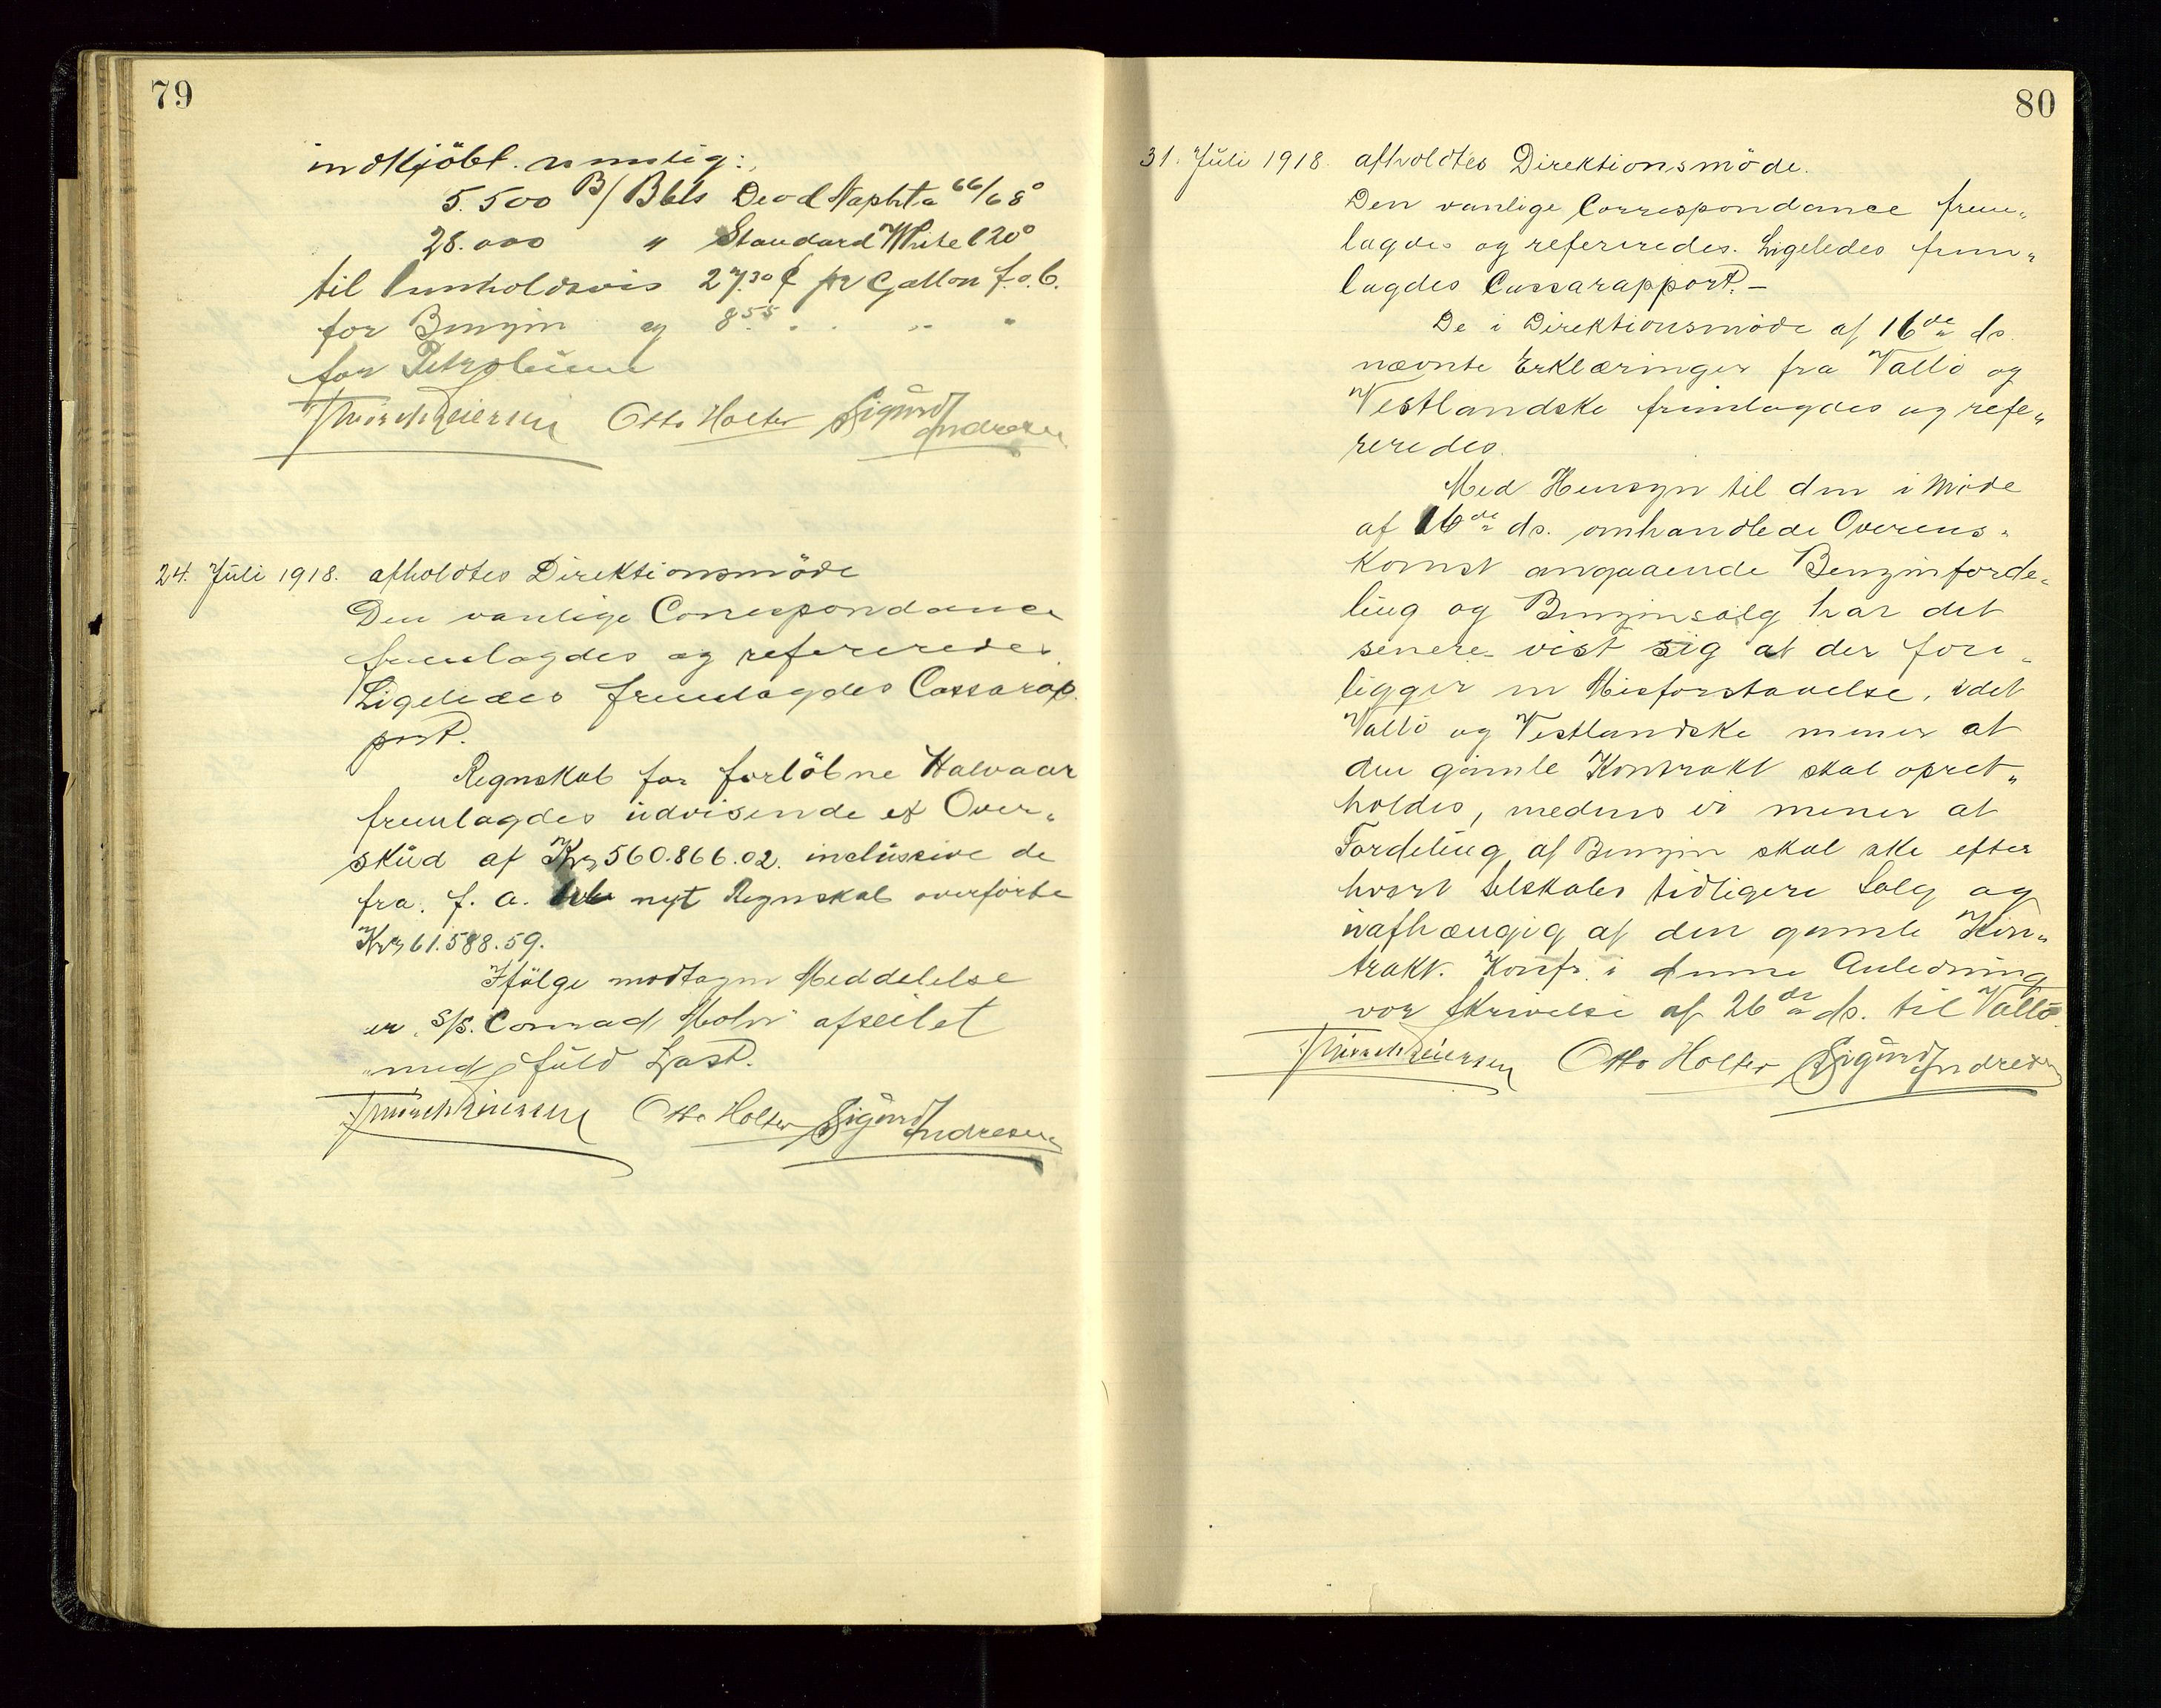 79
indkjöbt. nemlig:
5.500 B/ Bbls Deod Naphta 66/68°
28.000 " Standard White 120°
til 27.30 ¢ pr Gallon f.o.b.
for Benzin og 8.55 " " "
for Petroleum
Otto Holter Sigurd Andresen
24. Juli 1918. afholdtes Direktionsmöde
Den vanlige Correspondance
fremlagdes og refereredes.
Ligeledes fremlagdes Cassarap-
port.
Regnskab for forlöbne Halvaar
fremlagdes udvisende et Over-
skud af Kr 560.866.02. inclusive de
fra f. a. nyt Regnskab overförte
Kr 61.588.59.
Ifölge modtagen Meddelelse
er S/S. "Conrad Mohr" afseilet
med fuld Last.
Otto Holter Sigurd Andresen
80
31. Juli 1918. afholdtes Direktionsmöde.
Den vanlige Correspondance frem-
lagdes og refereredes. Ligeledes frem-
lagdes Cassarapport. —
De i Direktionsmöde af 16de ds.
nævnte Erklæringer fra Vallö og
Vestlandske fremlagdes og refe-
reredes.
Med Hensyn til den i Möde
af 16de ds. omhandlede Overens-
komst angaaende Benzinforde-
ling og Benzinsalg har det
senere vist sig at der fore-
ligger en Misforstaaelse, idet
Vallö og Vestlandske mener at
den gamle Kontrakt skal opret-
holdes, medens vi mener at
Fordeling af Benzin skal ske efter
hvert Selskabs tidligere Salg og
uafhængig af den gamle Kon-
trakt. Konfr. i denne Anledning
vor Skrivelse af 26de ds. til Vallö.
Otto Holter Sigurd Andresen